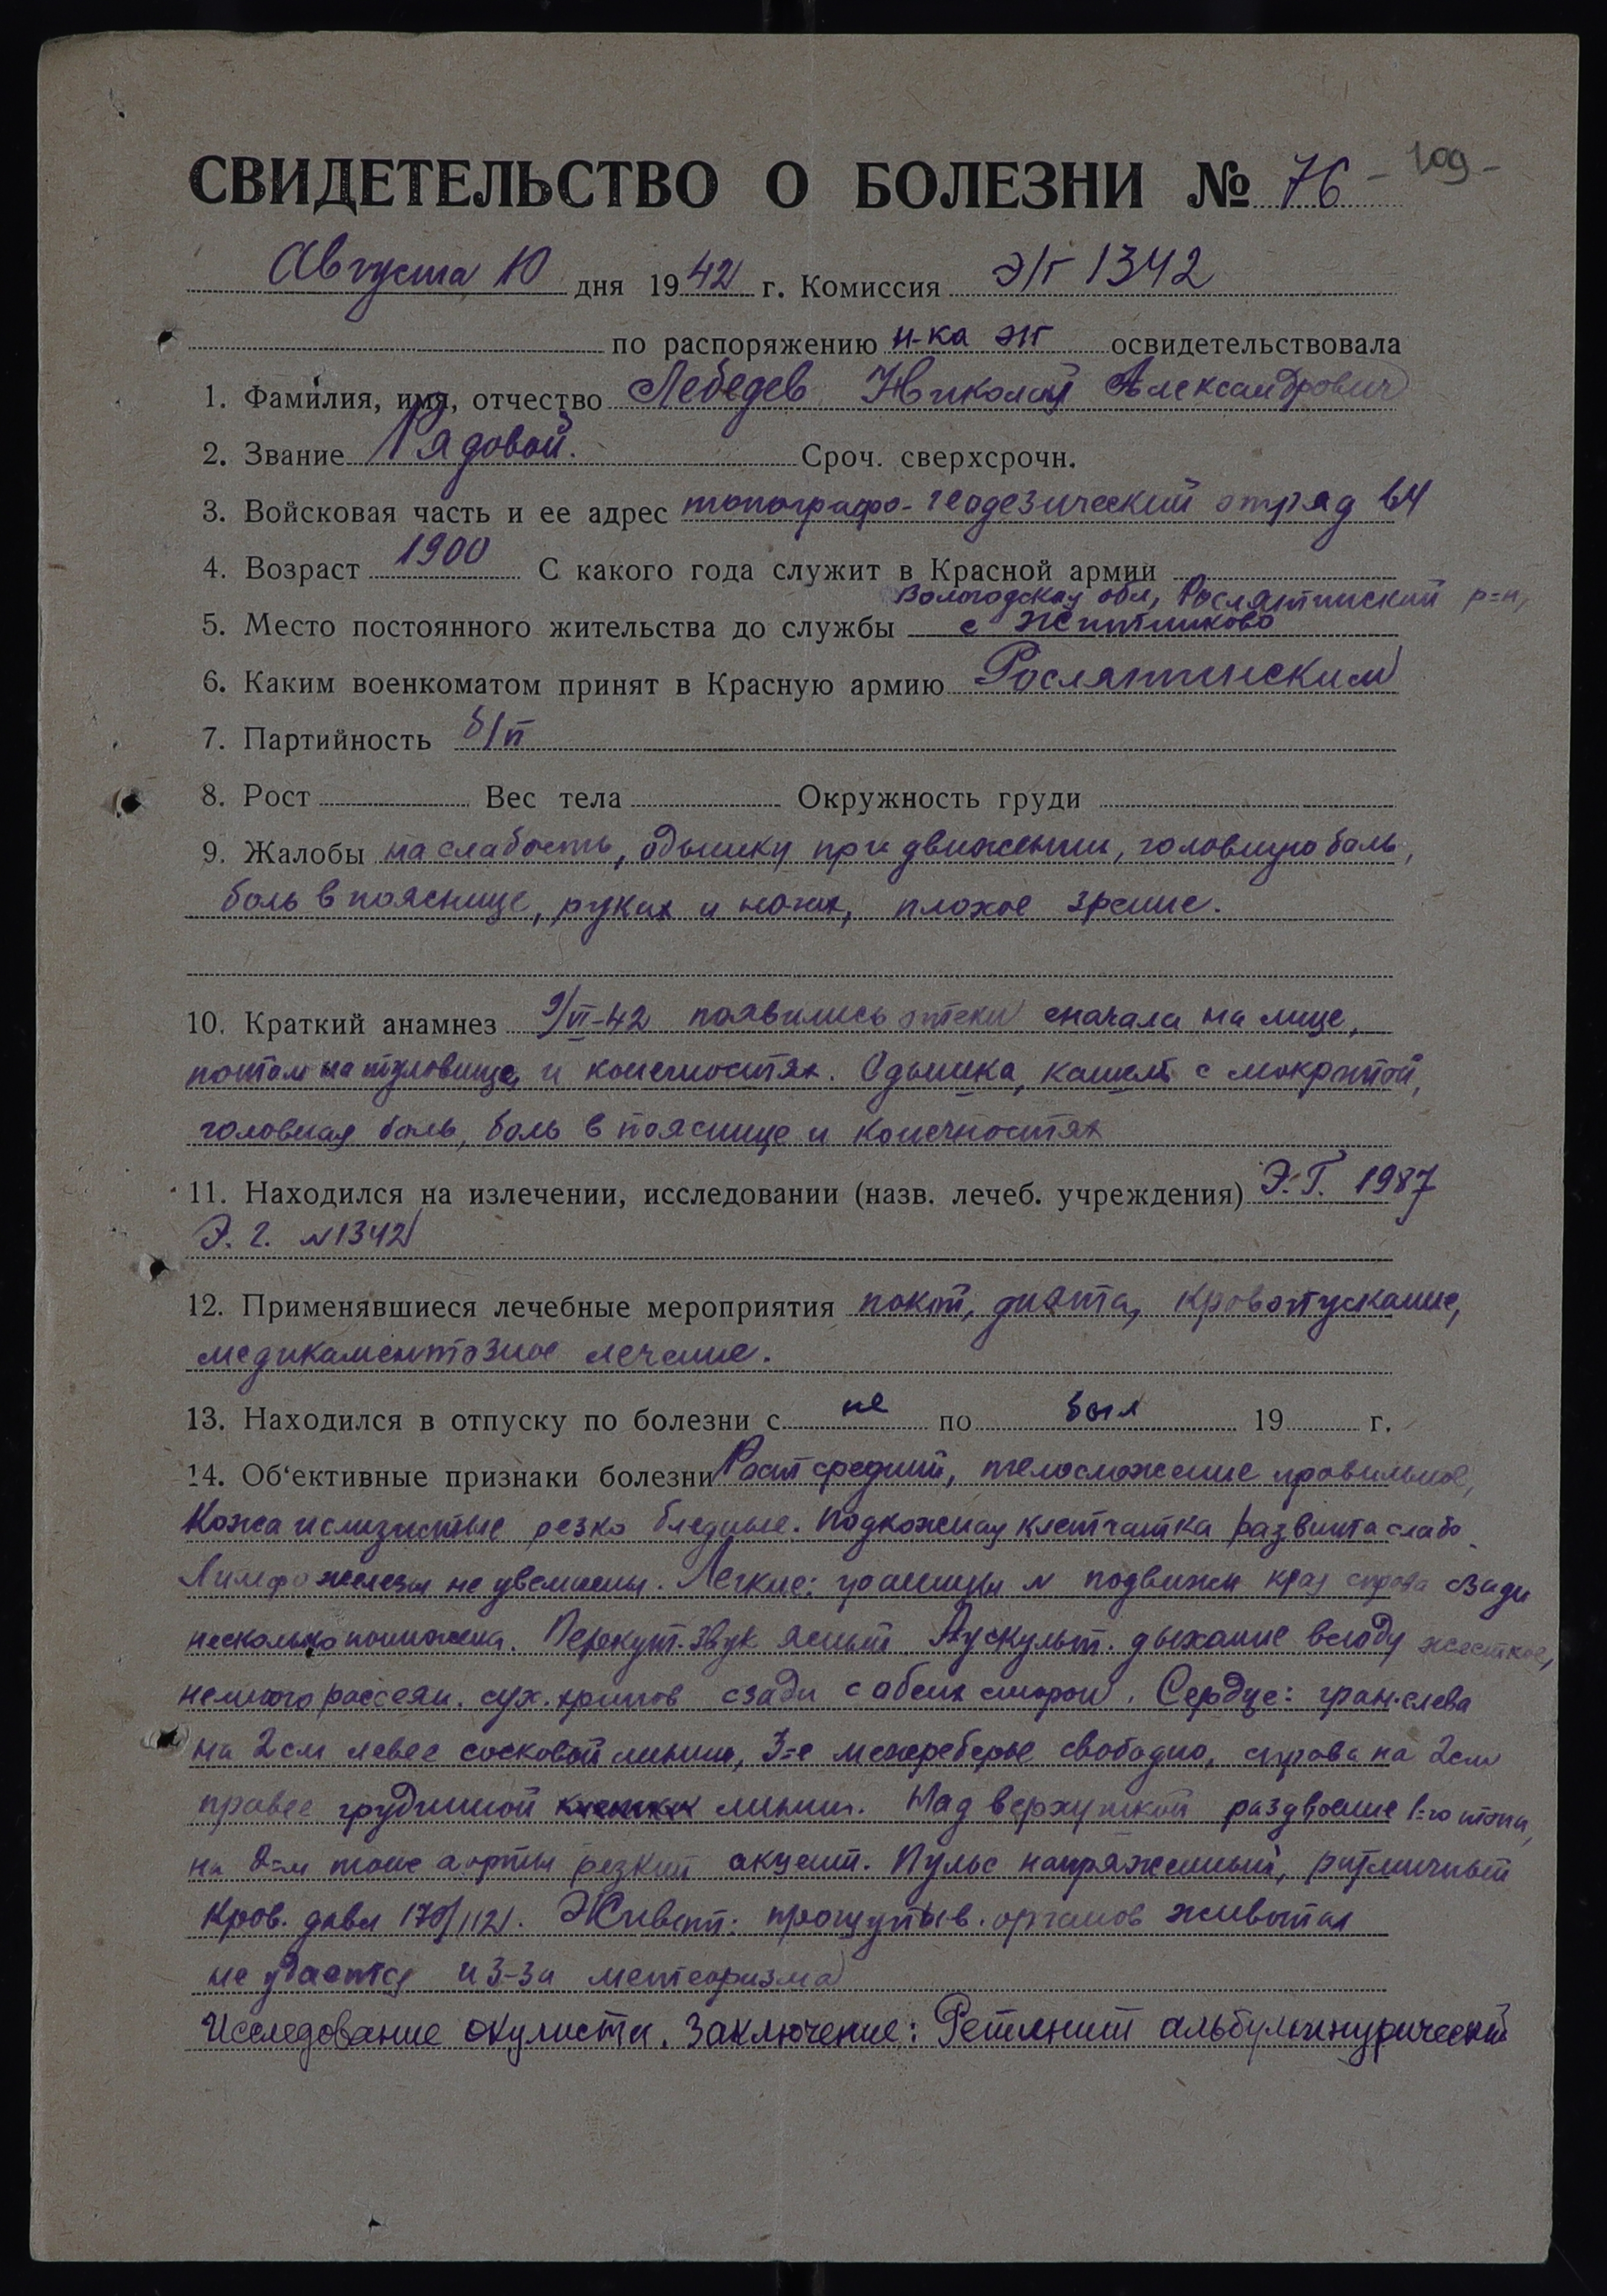 СВИДЕТЕЛЬСТВО О БОЛЕЗНИ № 76 - 109 -
Августа 10 дня 1942 г. Комиссия Э/Г 1342
по распоряжению н-ка ЭГ освидетельствовала
1. Фамилия, имя, отчество Лебедев Николай Александрович
2. Звание Рядовой. Сроч. сверхсрочн.
3. Войсковая часть и ее адрес топографо-геодезический отряд 64
4. Возраст 1900 С какого года служит в Красной армии
Вологодская обл, Рослятинский р-н,
5. Место постоянного жительства до службы с
6. Каким военкоматом принят в Красную армию Рослятинским
7. Партийность б/п
8. Рост Вес тела Окружность груди
9. Жалобы на слабость, одышку при движении, головную боль,
боль в пояснице, руках и ногах, плохое зрение.
10. Краткий анамнез 9/VI-42 появились отеки сначала на лице,
потом на туловище и конечностях. Одышка, кашель с мокротой,
головная боль, боль в пояснице и конечностях
11. Находился на излечении, исследовании (назв. лечеб. учреждения) Э.Г. 1987
Э.Г. №1342
12. Применявшиеся лечебные мероприятия покой, диэта, кровопускание,
медикаментозное лечение.
13. Находился в отпуску по болезни с не по был 19 г.
14. Об‘ективные признаки болезни Рост средний, телосложение правильное,
Кожа и слизистые резко бледные. Подкожная клетчатка развита слабо
Лимфожелезы не увеличены. Легкие: границы N подвижн края справа сзади
несколько понижена. Перкут. звук ясный Аускульт. дыхание всюду жесткое,
немного рассеян. сух. хрипов сзади с обеих сторон. Сердце: гран. слева
на 2 см левее сосковой линии, 3-е межреберье свободно, справа на 2 см
правее грудинной линии. Над верхушкой раздвоение 1-го тона,
на 2-м тоне аорты резкий акцент. Пульс напряженный, ритмичный
Кров. давл 170/112. Живот: прощупыв. органов живота
не удается из-за метеоризма
Исследование окулиста. Заключение: Ретинит альбуминурический